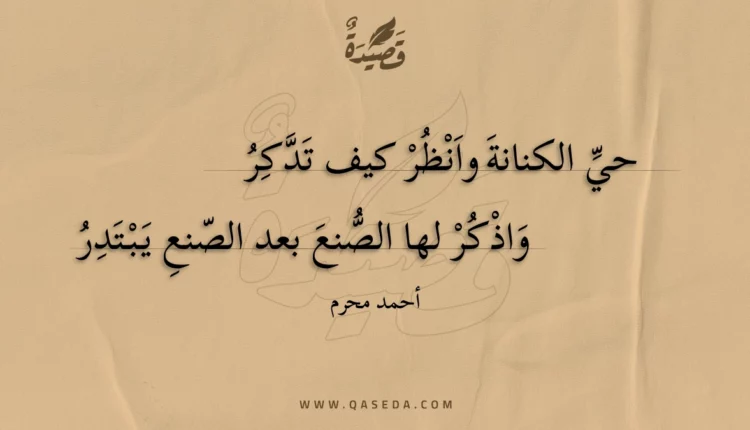 قَصِيدَةٌ
حيِّ الكنانةَ واَنْظُرْ كيف تَدَّكِرُ
وَاذْكُرْ لها الصُّنعَ بعد الصّنعِ يَبْتَدِرُ
أحمد محرم
WWW.QASEDA.COM